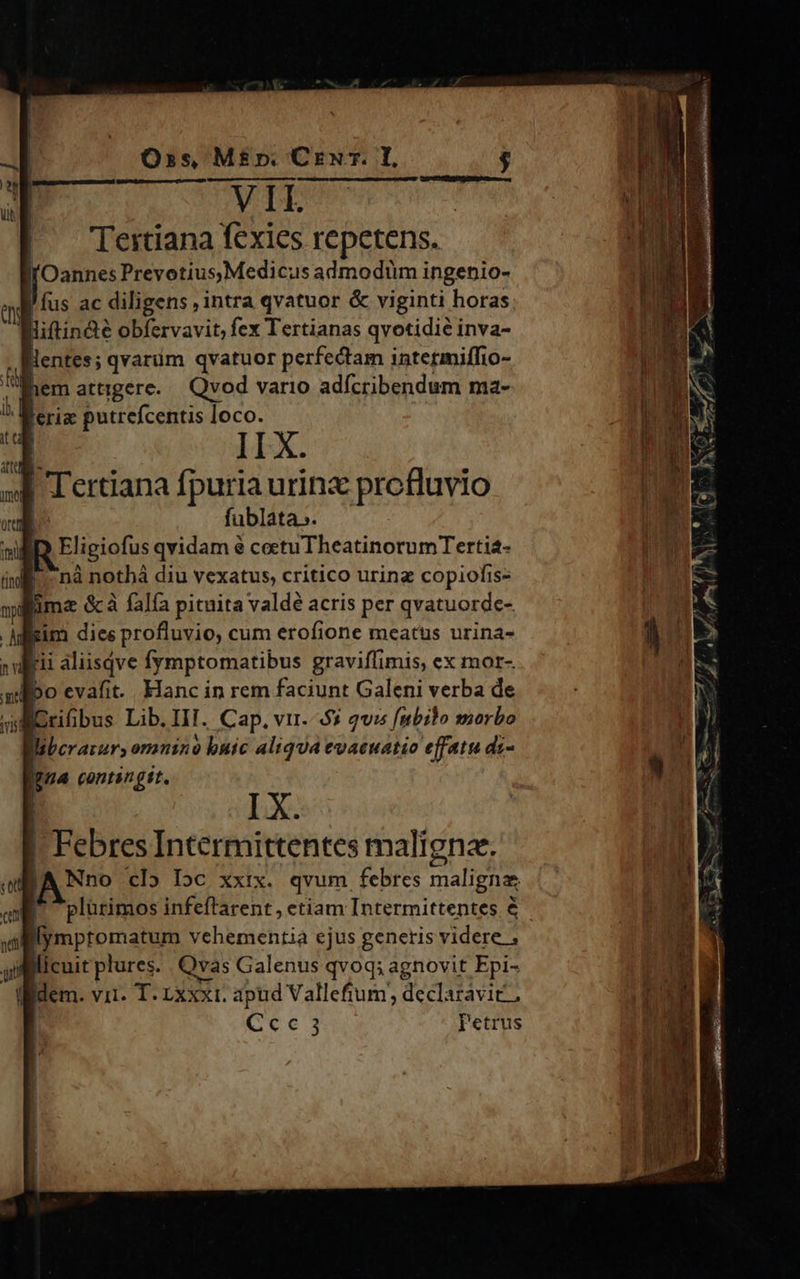 Obs, Med. Cent. I. 5
VII.
Tertiana ſexies repetens.
IOannes Prevotius, Medicus admodùm ingenio-
ſus ac diligens, intra qvatuor & viginti horas
diſtinctè obſervavit, ſex Tertianas qvotidiè inva-
dentes; qvarùm qvatuor perfectam intermiſſio-
nem attigere. Qvod vario adſcribendum ma-
teriæ putreſcentis loco.
IIX.
Tertiana ſpuria urinæ profluvio
ſublata.
REligioſus qvidam è cœtu Theatinorum Tertia-
nâ nothâ diu vexatus, critico urinæ copioſiſ-
ſimæ & à falſa pituita valdè acris per qvatuorde-
cim dies profluvio, cum eroſione meatus urina-
rii aliisqve ſymptomatibus graviſſimis, ex mor-
bo evaſit. Hanc in rem faciunt Galeni verba de
Criſibus Lib. III. Cap. VII. Si quis ſubito morbo
liberatur, omninò huic aliqvà evacuatio effatu di-
gna contingit.
IX.
Febres Intermittentes malignæ.
ANno cIↃ IↃc xxix. qvum febres malignæ
plurimos infeſtarent, etiam Intermittentes è
ſymptomatum vehementia ejus generis videre
licuit plures. Qvas Galenus qvoq; agnovit Epi-
dem. VII. T. LXXXI. apud Valleſium, declaravit
Ccc 3 Petrus